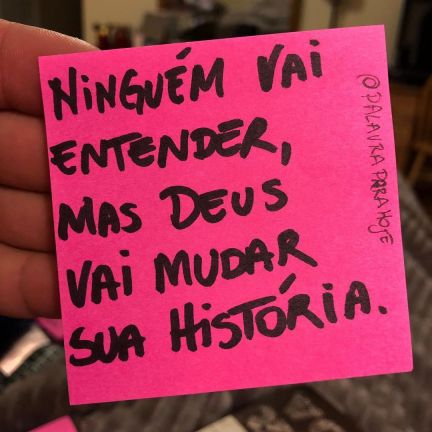 NINGUÉM VAI
ENTENDER,
MAS DEUS
VAI MUDAR
SUA HISTÓRIA.
@PALAVRAPARAHOJE